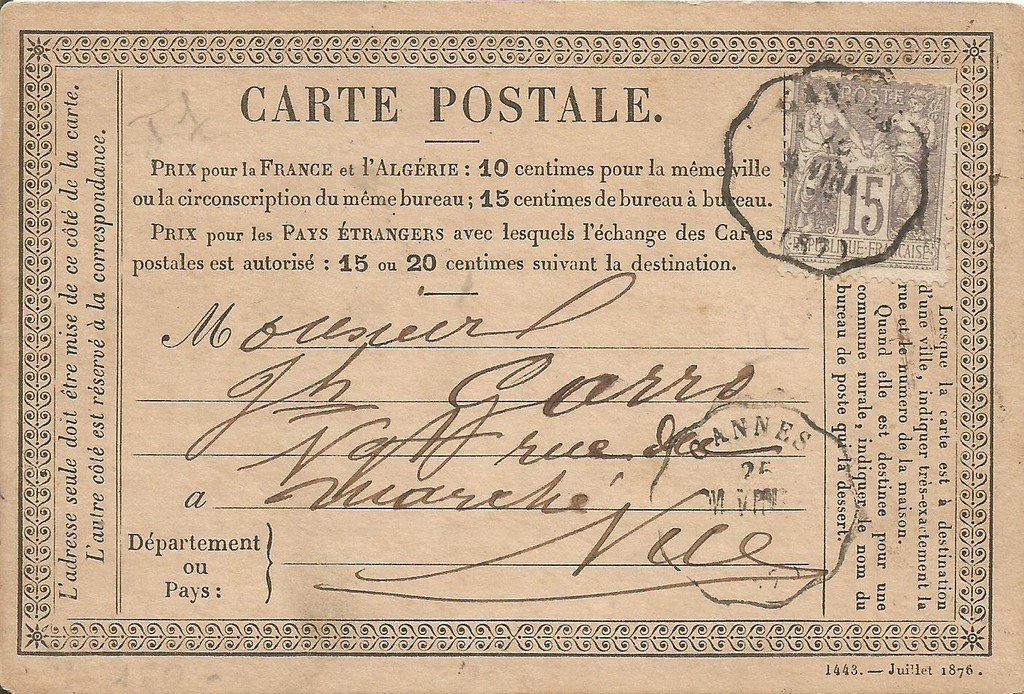 CARTE POSTALE.
PRIX pour la FRANCE et l'ALGÉRIE : 10 centimes pour la même ville
ou la circonscription du même bureau ; 15 centimes de bureau à bureau.
PRIX pour les PAYS ÉTRANGERS avec lesquels l'échange des Cartes
postales est autorisé : 15 ou 20 centimes suivant la destination.
L'adresse seule doit être mise de ce côté de la carte.
L'autre côté est réservé à la correspondance.
POSTE
15
REPUBLIQUE FRANÇAISE
Monsieur
Jh Garro
rue du
a marché
Nice
Département
ou
Pays :
CANNES
25
Lorsque la carte est à destination
d'une ville, indiquer très-exactement la
rue et le numero de la maison.
Quand elle est destinée pour une
commune rurale, indiquer le nom du
bureau de poste qui la dessert.
1443. — Juillet 1876.